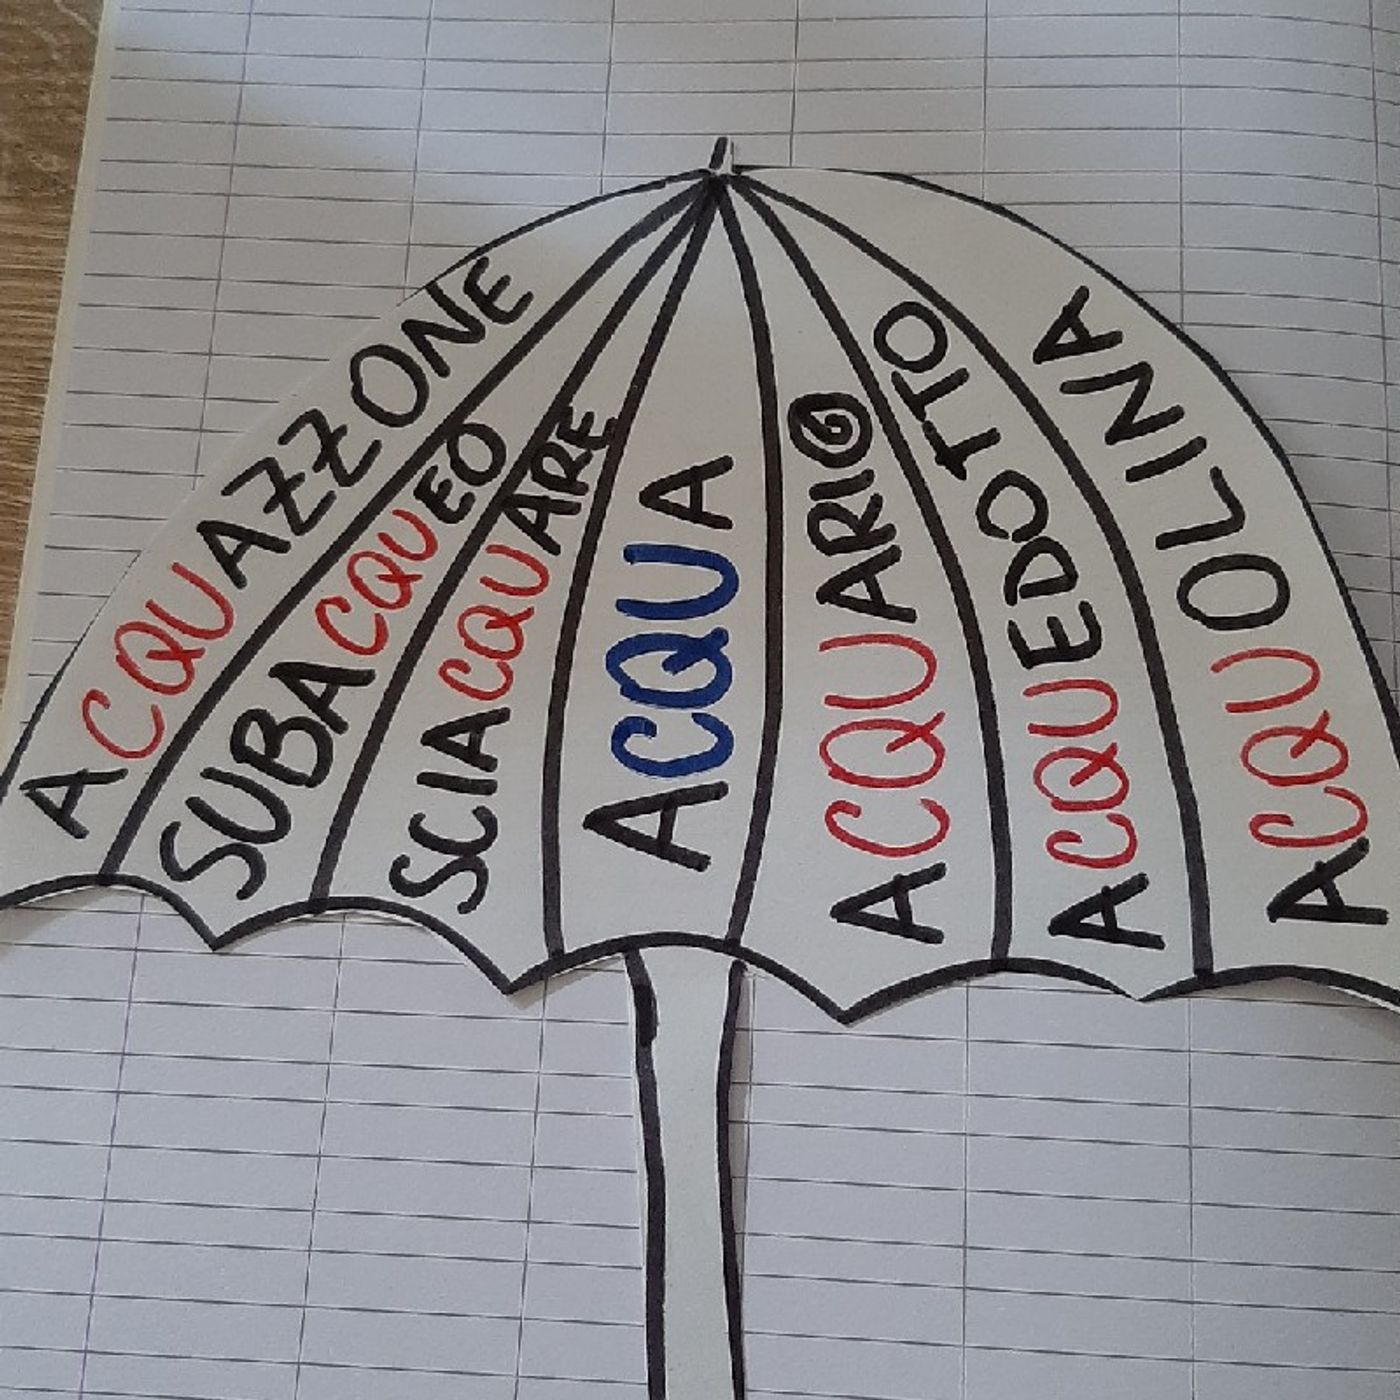 ACQUAZZONE
SUBACQUEO
SCIACQUARE
ACQUA
ACQUARIO
ACQUEDOTTO
ACQUOLINA